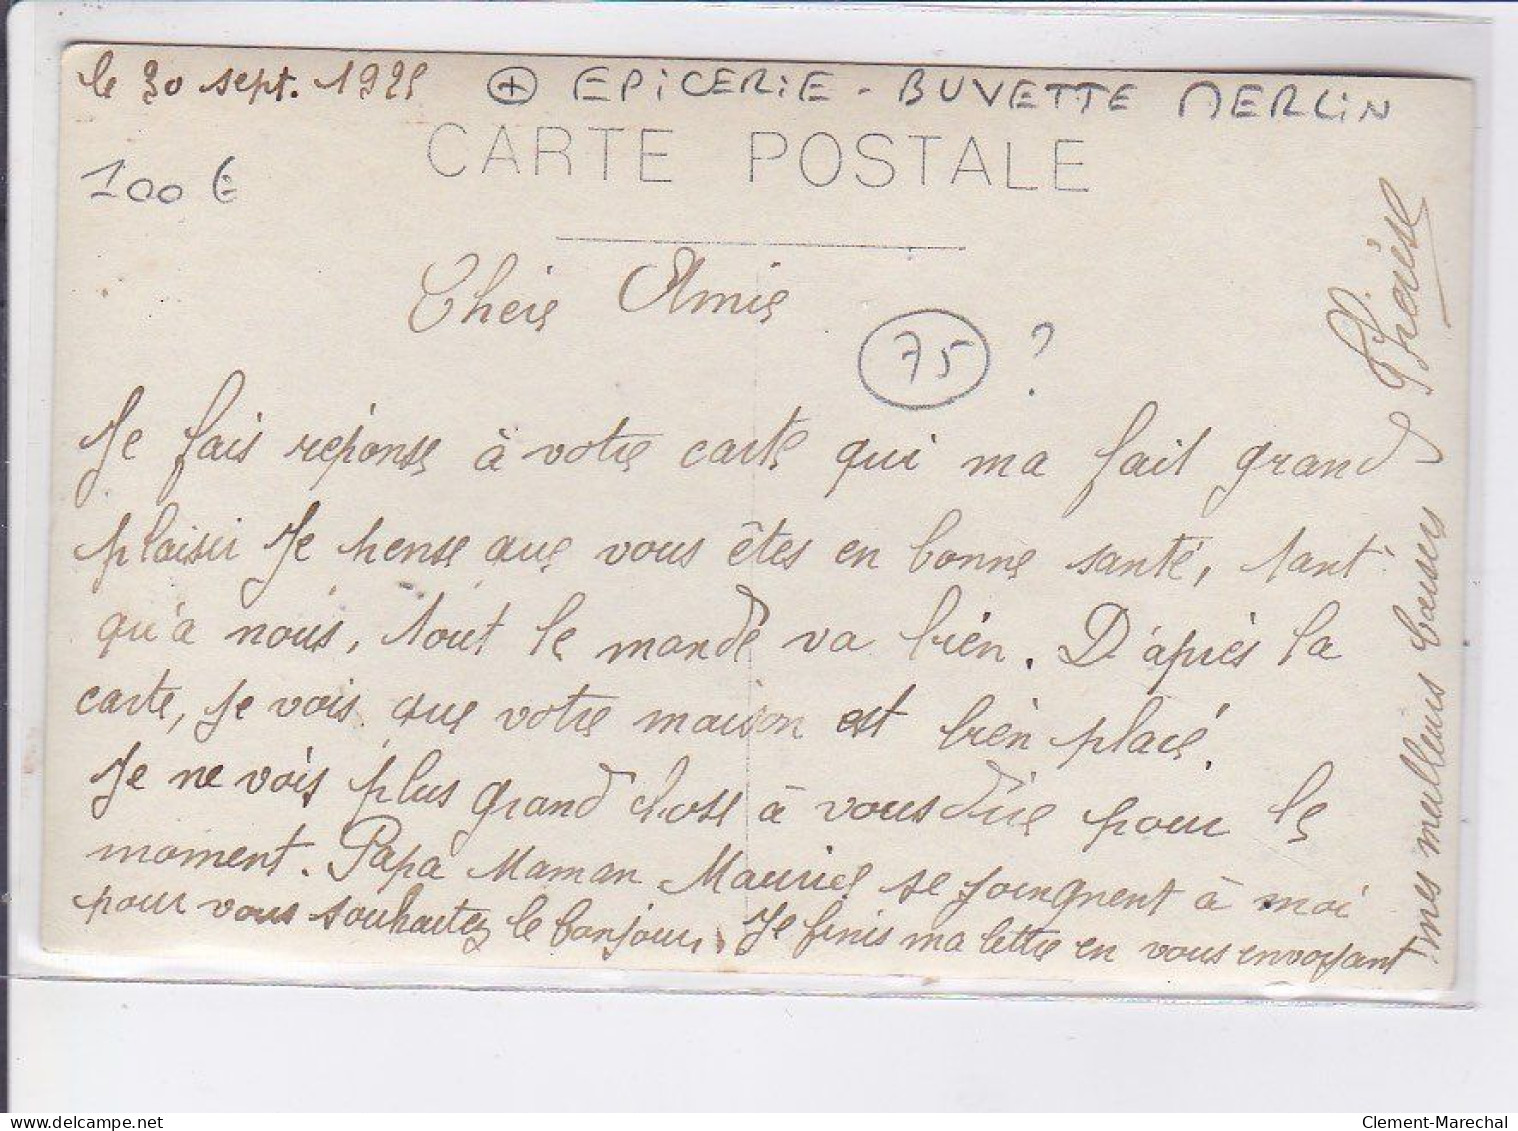 le 30 sept. 1925
+ EPICERIE - BUVETTE MERLIN
CARTE POSTALE
100 €
Chers Amis
75 ?
Je fais réponse à votre carte qui ma fait grand
plaisir Je pense que vous êtes en bonne santé, tant
qu'a nous, tout le monde va bien. D'après la
carte, je vois que votre maison est bien placé.
Je ne vois plus grand chose à vous dire pour le
moment. Papa Maman Maurice se joingnent à moi
pour vous souhaitez le bonjour. Je finis ma lettre en vous envoyant
mes meilleurs baisers Thérèse
Clement-Marechal